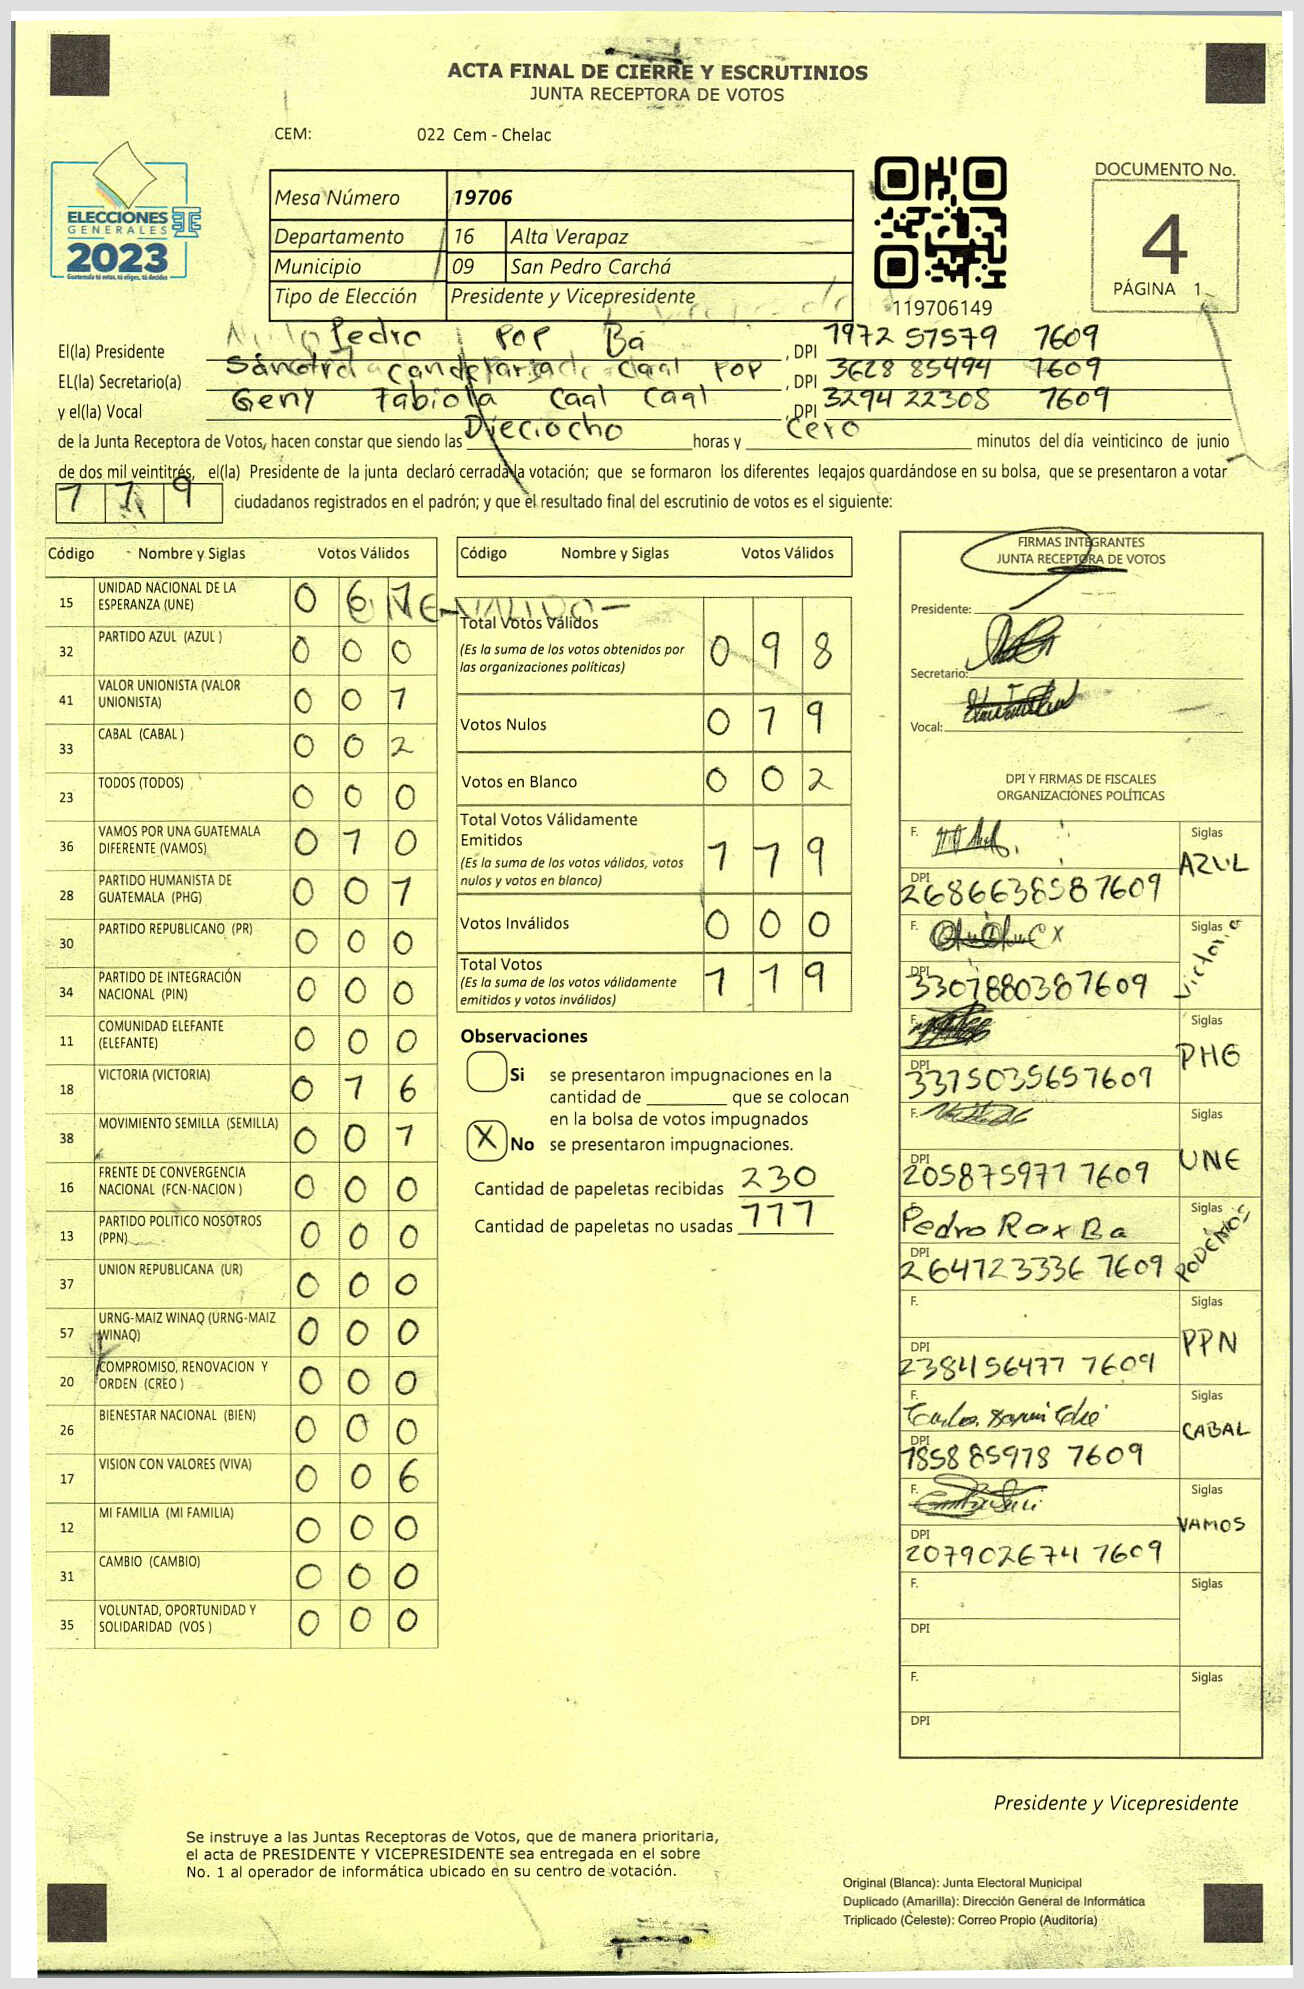 ACTA FINAL DE CIERRE Y ESCRUTINIOS
JUNTA RECEPTORA DE VOTOS
CEM: 022 Cem - Chelac
ELECCIONES
GENERALES
2023
Guatemala tú votas, tú eliges, tú decides
Mesa Número 19706
Departamento 16 Alta Verapaz
Municipio 09 San Pedro Carchá
Tipo de Elección Presidente y Vicepresidente
119706149
DOCUMENTO No.
4
PÁGINA 1
El(la) Presidente Pedro Pop Ba , DPI 1972 51519 1609
EL(la) Secretario(a) Sandra Candelaria Caal Pop , DPI 3628 85494 1609
y el(la) Vocal Geny Fabiola Caal Caal , DPI 3294 22308 1609
de la Junta Receptora de Votos, hacen constar que siendo las Dieciocho horas y Cero minutos del día veinticinco de junio
de dos mil veintitrés, el(la) Presidente de la junta declaró cerrada la votación; que se formaron los diferentes legajos quardándose en su bolsa, que se presentaron a votar
119 ciudadanos registrados en el padrón; y que el resultado final del escrutinio de votos es el siguiente:
Código Nombre y Siglas Votos Válidos
15 UNIDAD NACIONAL DE LA ESPERANZA (UNE) 0 6 1
32 PARTIDO AZUL (AZUL ) 0 0 0
41 VALOR UNIONISTA (VALOR UNIONISTA) 0 0 1
33 CABAL (CABAL ) 0 0 2
23 TODOS (TODOS) 0 0 0
36 VAMOS POR UNA GUATEMALA DIFERENTE (VAMOS) 0 1 0
28 PARTIDO HUMANISTA DE GUATEMALA (PHG) 0 0 1
30 PARTIDO REPUBLICANO (PR) 0 0 0
34 PARTIDO DE INTEGRACIÓN NACIONAL (PIN) 0 0 0
11 COMUNIDAD ELEFANTE (ELEFANTE) 0 0 0
18 VICTORIA (VICTORIA) 0 1 6
38 MOVIMIENTO SEMILLA (SEMILLA) 0 0 1
16 FRENTE DE CONVERGENCIA NACIONAL (FCN-NACION ) 0 0 0
13 PARTIDO POLITICO NOSOTROS (PPN) 0 0 0
37 UNION REPUBLICANA (UR) 0 0 0
57 URNG-MAIZ WINAQ (URNG-MAIZ WINAQ) 0 0 0
20 COMPROMISO, RENOVACION Y ORDEN (CREO ) 0 0 0
26 BIENESTAR NACIONAL (BIEN) 0 0 0
17 VISION CON VALORES (VIVA) 0 0 6
12 MI FAMILIA (MI FAMILIA) 0 0 0
31 CAMBIO (CAMBIO) 0 0 0
35 VOLUNTAD, OPORTUNIDAD Y SOLIDARIDAD (VOS ) 0 0 0
Código Nombre y Siglas Votos Válidos
Total Votos Válidos 0 9 8
(Es la suma de los votos obtenidos por
las organizaciones políticas)
Votos Nulos 0 1 9
Votos en Blanco 0 0 2
Total Votos Válidamente
Emitidos 1 1 9
(Es la suma de los votos válidos, votos
nulos y votos en blanco)
Votos Inválidos 0 0 0
Total Votos 1 1 9
(Es la suma de los votos válidamente
emitidos y votos inválidos)
Observaciones
Si se presentaron impugnaciones en la
cantidad de ________ que se colocan
en la bolsa de votos impugnados
X No se presentaron impugnaciones.
Cantidad de papeletas recibidas 230
Cantidad de papeletas no usadas 111
FIRMAS INTEGRANTES
JUNTA RECEPTORA DE VOTOS
Presidente:
Secretario:
Vocal:
DPI Y FIRMAS DE FISCALES
ORGANIZACIONES POLÍTICAS
F. Siglas AZUL
DPI 268663858 1609
F. Siglas Victoria
DPI 330188038 1609
F. Siglas PHG
DPI 331503565 1609
F. Siglas UNE
DPI 205875977 1609
F. Pedro Rax Ba Siglas PODEMOS
DPI 264123336 1609
F. Siglas PPN
DPI 238456477 1609
F. Siglas CABAL
DPI 1858 85978 1609
F. Siglas VAMOS
DPI 207902674 1609
F. Siglas
DPI
F. Siglas
DPI
Presidente y Vicepresidente
Se instruye a las Juntas Receptoras de Votos, que de manera prioritaria,
el acta de PRESIDENTE Y VICEPRESIDENTE sea entregada en el sobre
No. 1 al operador de informática ubicado en su centro de votación.
Original (Blanca): Junta Electoral Municipal
Duplicado (Amarilla): Dirección General de Informática
Triplicado (Celeste): Correo Propio (Auditoría)